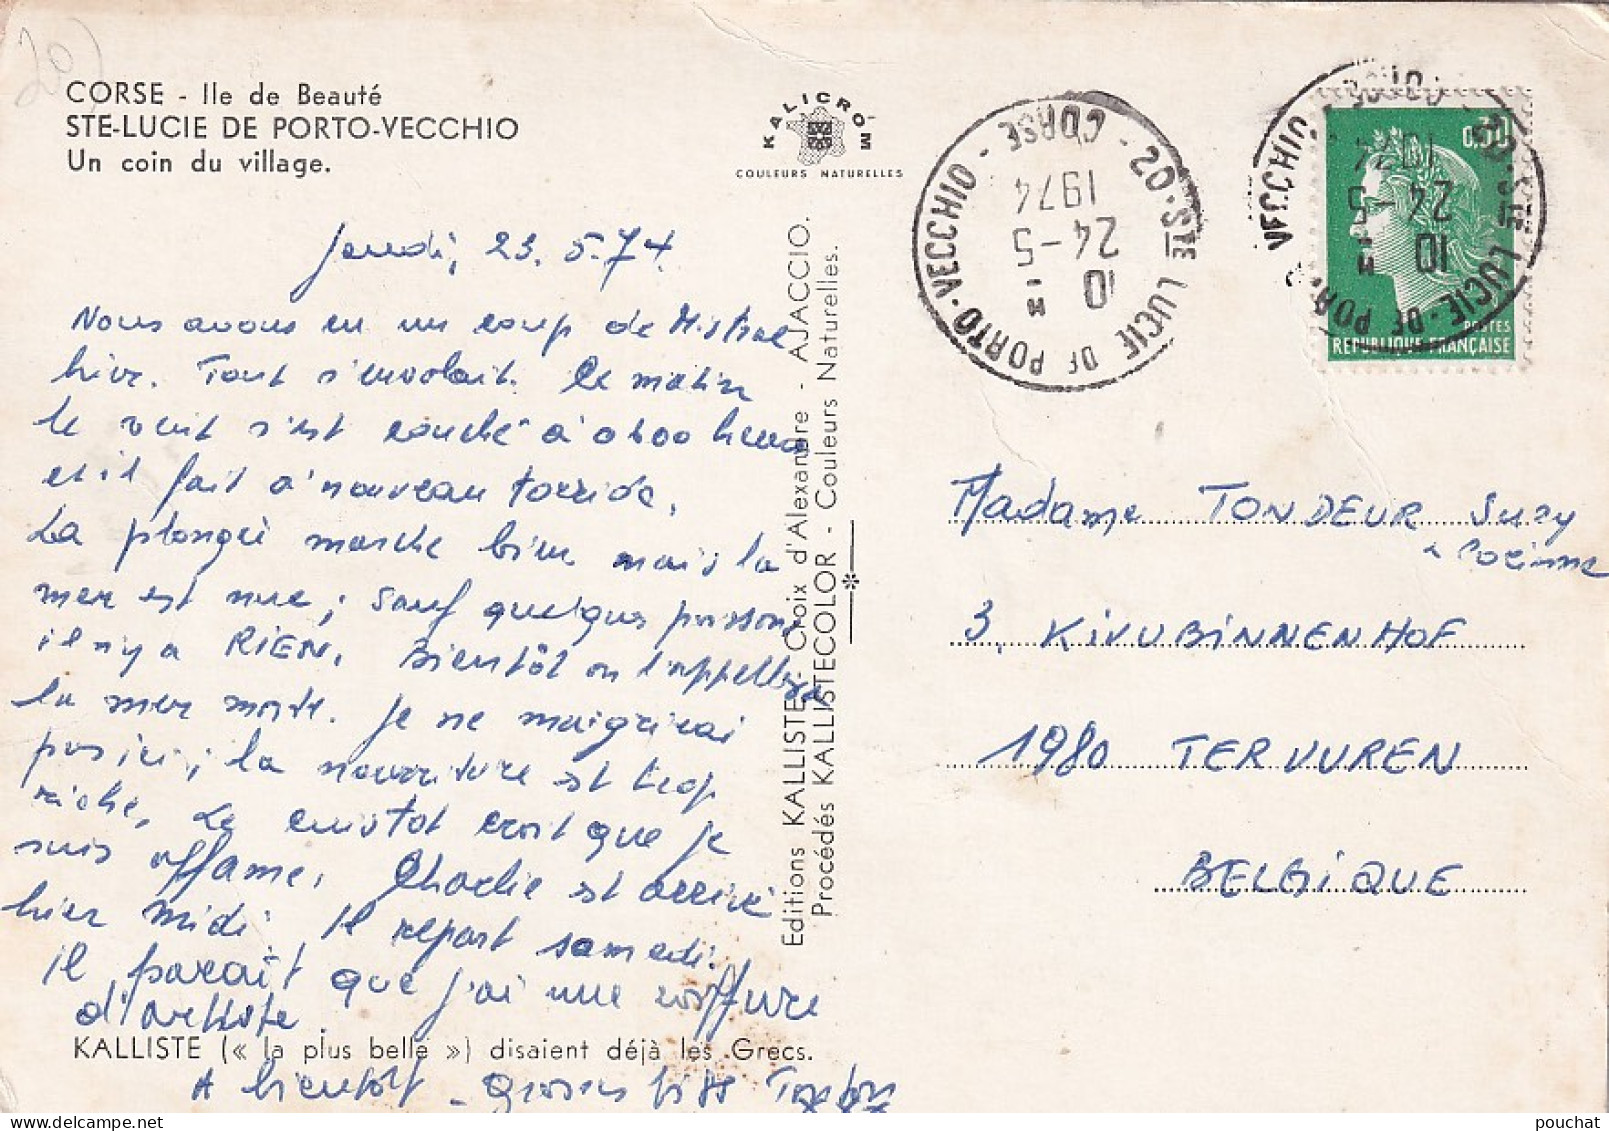 20)
CORSE - Ile de Beauté
STE-LUCIE DE PORTO-VECCHIO
Un coin du village.
KALICROM
COULEURS NATURELLES
Jeudi, 23.5.74.
Nous avons eu un coup de Mistral
hier. Tout s'envolait. Ce matin
le vent s'est couché à 0600 heures
et il fait à nouveau torride.
La plongée marche bien mais la
mer est nue; sauf quelques poissons
il n'y a RIEN. Bientôt on l'appellera
la mer morte. Je ne maigrirai
pas ici; la nourriture est trop
riche. Le cuistot croit que je
suis affamé. Charlie est arrivé
hier midi. Il repart samedi.
Il paraît que j'ai une coiffure
d'artiste.
KALLISTE (« la plus belle ») disaient déjà les Grecs.
A bientôt - Grosses bises
Editions KALLISTE, Croix d'Alexandre - AJACCIO.
Procédés KALLISTECOLOR - Couleurs Naturelles.
20-STE LUCIE DE PORTO-VECCHIO - CORSE -
10 H
24-5
1974
20-STE LUCIE-DE PORTO-VECCHIO - CORSE
10 H
24-5
1974
0,30
POSTES
REPUBLIQUE FRANÇAISE
Madame TONDEUR Suzy
& Corinne
3, KIVUBINNENHOF
1980 TERVUREN
BELGIQUE
pouchat